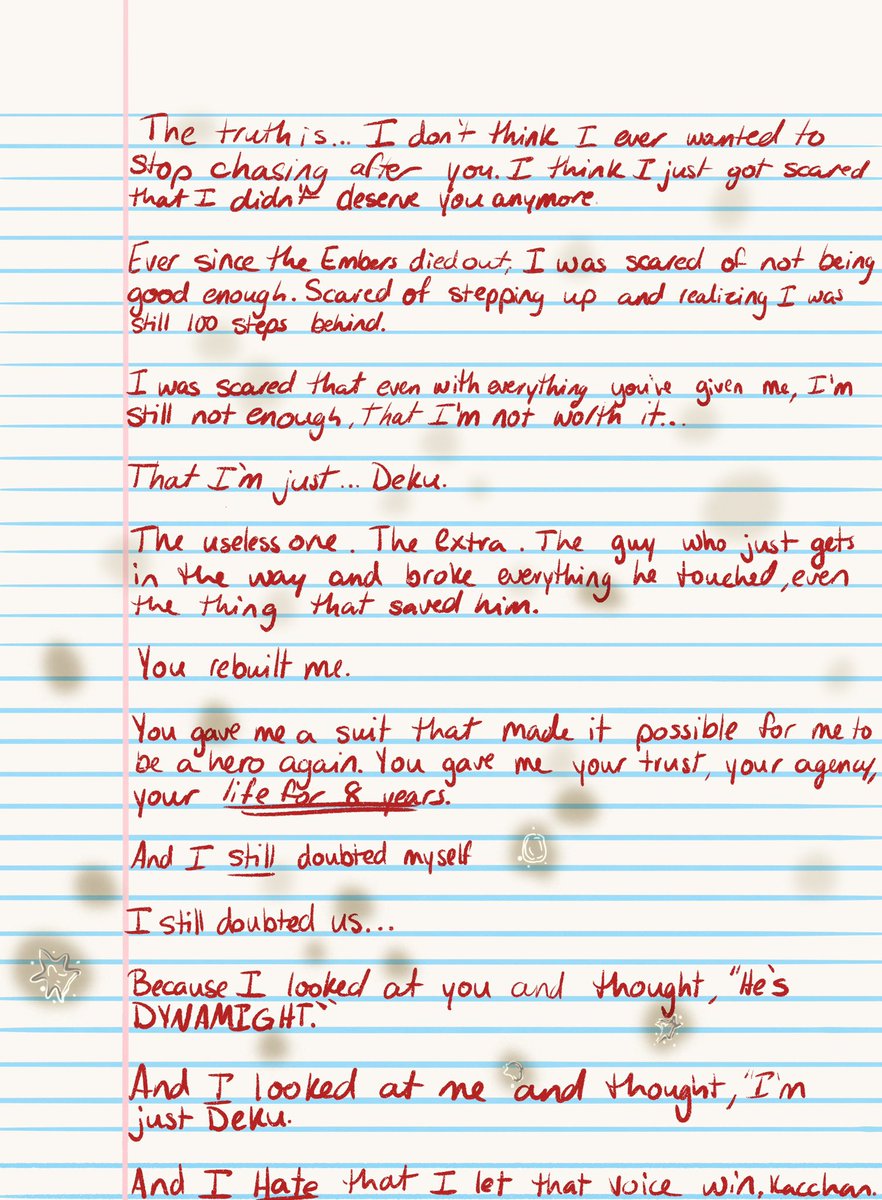 The truth is... I don't think I ever wanted to
stop chasing after you. I think I just got scared
that I didn't deserve you anymore.
Ever since the Embers died out, I was scared of not being
good enough. Scared of stepping up and realizing I was
still 100 steps behind.
I was scared that even with everything you've given me, I'm
still not enough, that I'm not worth it...
That I'm just... Deku.
The useless one. The extra. The guy who just gets
in the way and broke everything he touched, even
the thing that saved him.
You rebuilt me.
You gave me a suit that made it possible for me to
be a hero again. You gave me your trust, your agency,
your life for 8 years.
And I still doubted myself
I still doubted us...
Because I looked at you and thought, "He's
DYNAMIGHT."
And I looked at me and thought, "I'm
just Deku.
And I Hate that I let that voice win, Kacchan.